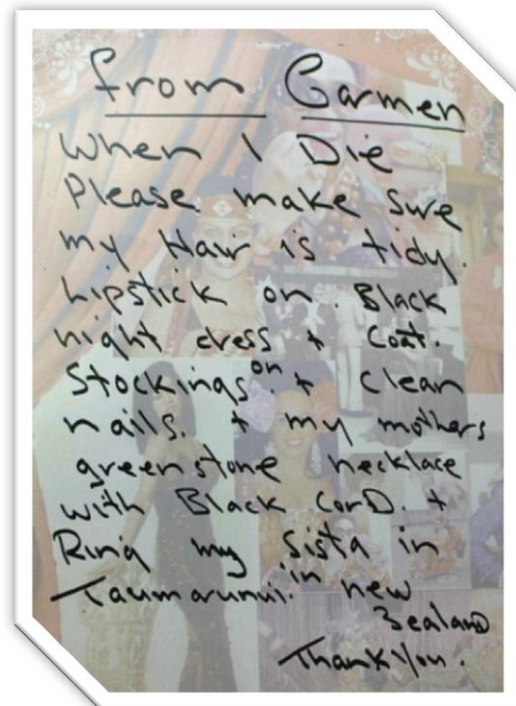 from Carmen
When I Die
Please make sure
my Hair is tidy.
Lipstick on. Black
night dress + Coat.
Stockings on. + clean
nails. + my mothers
greenstone necklace
with Black CorD. +
Ring my Sista in
Taumarunui. in new
Zealand
Thank You.